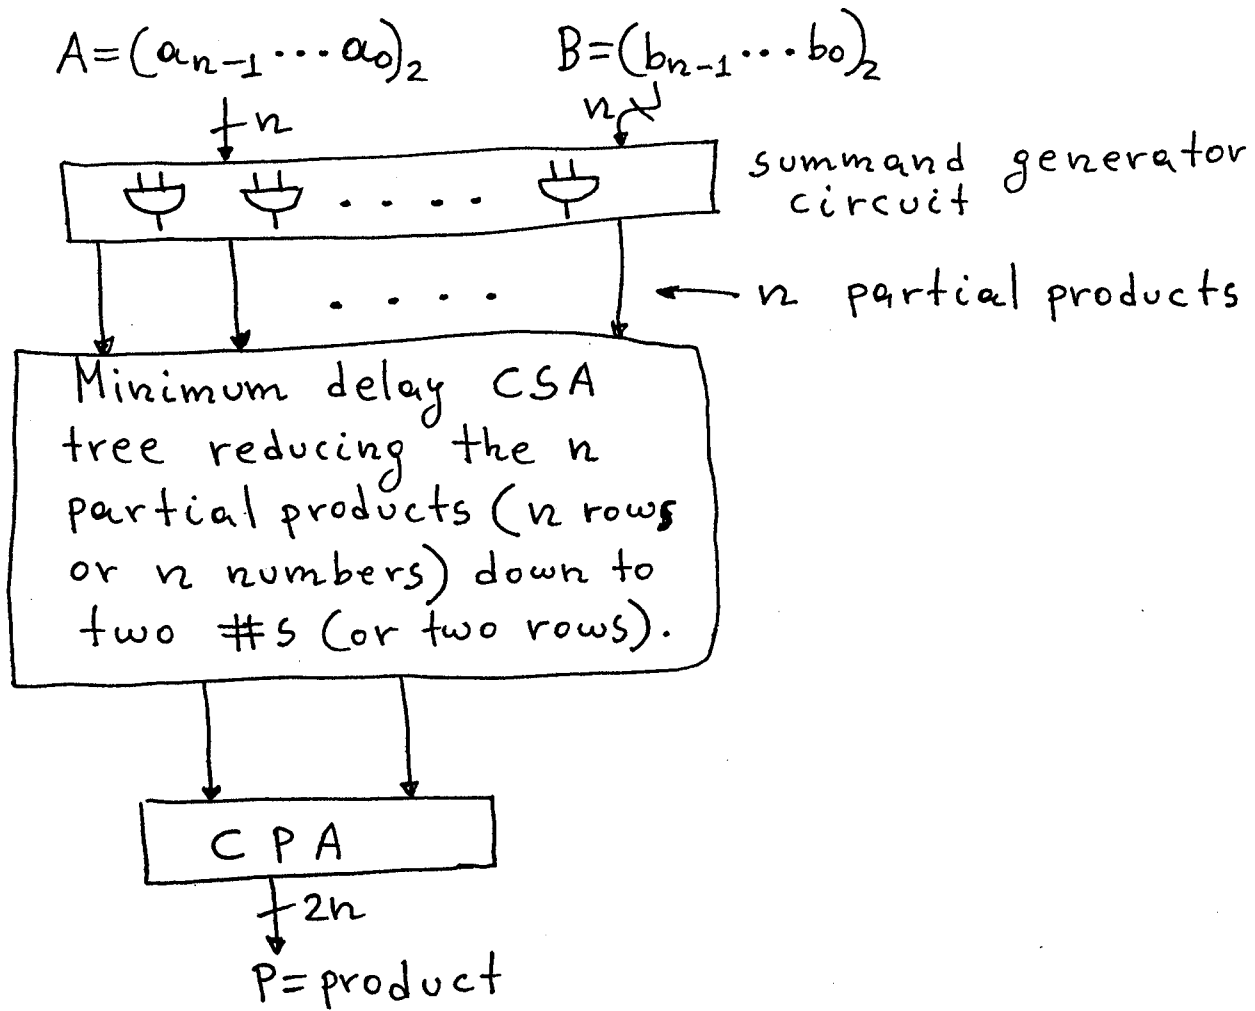 A=(aₙ₋₁ ··· a₀)₂
B=(bₙ₋₁ ··· b₀)₂
n
n
summand generator
circuit
· · · ·
· · · ·
n partial products
Minimum delay CSA
tree reducing the n
partial products (n rows
or n numbers) down to
two #s (or two rows).
CPA
2n
P=product